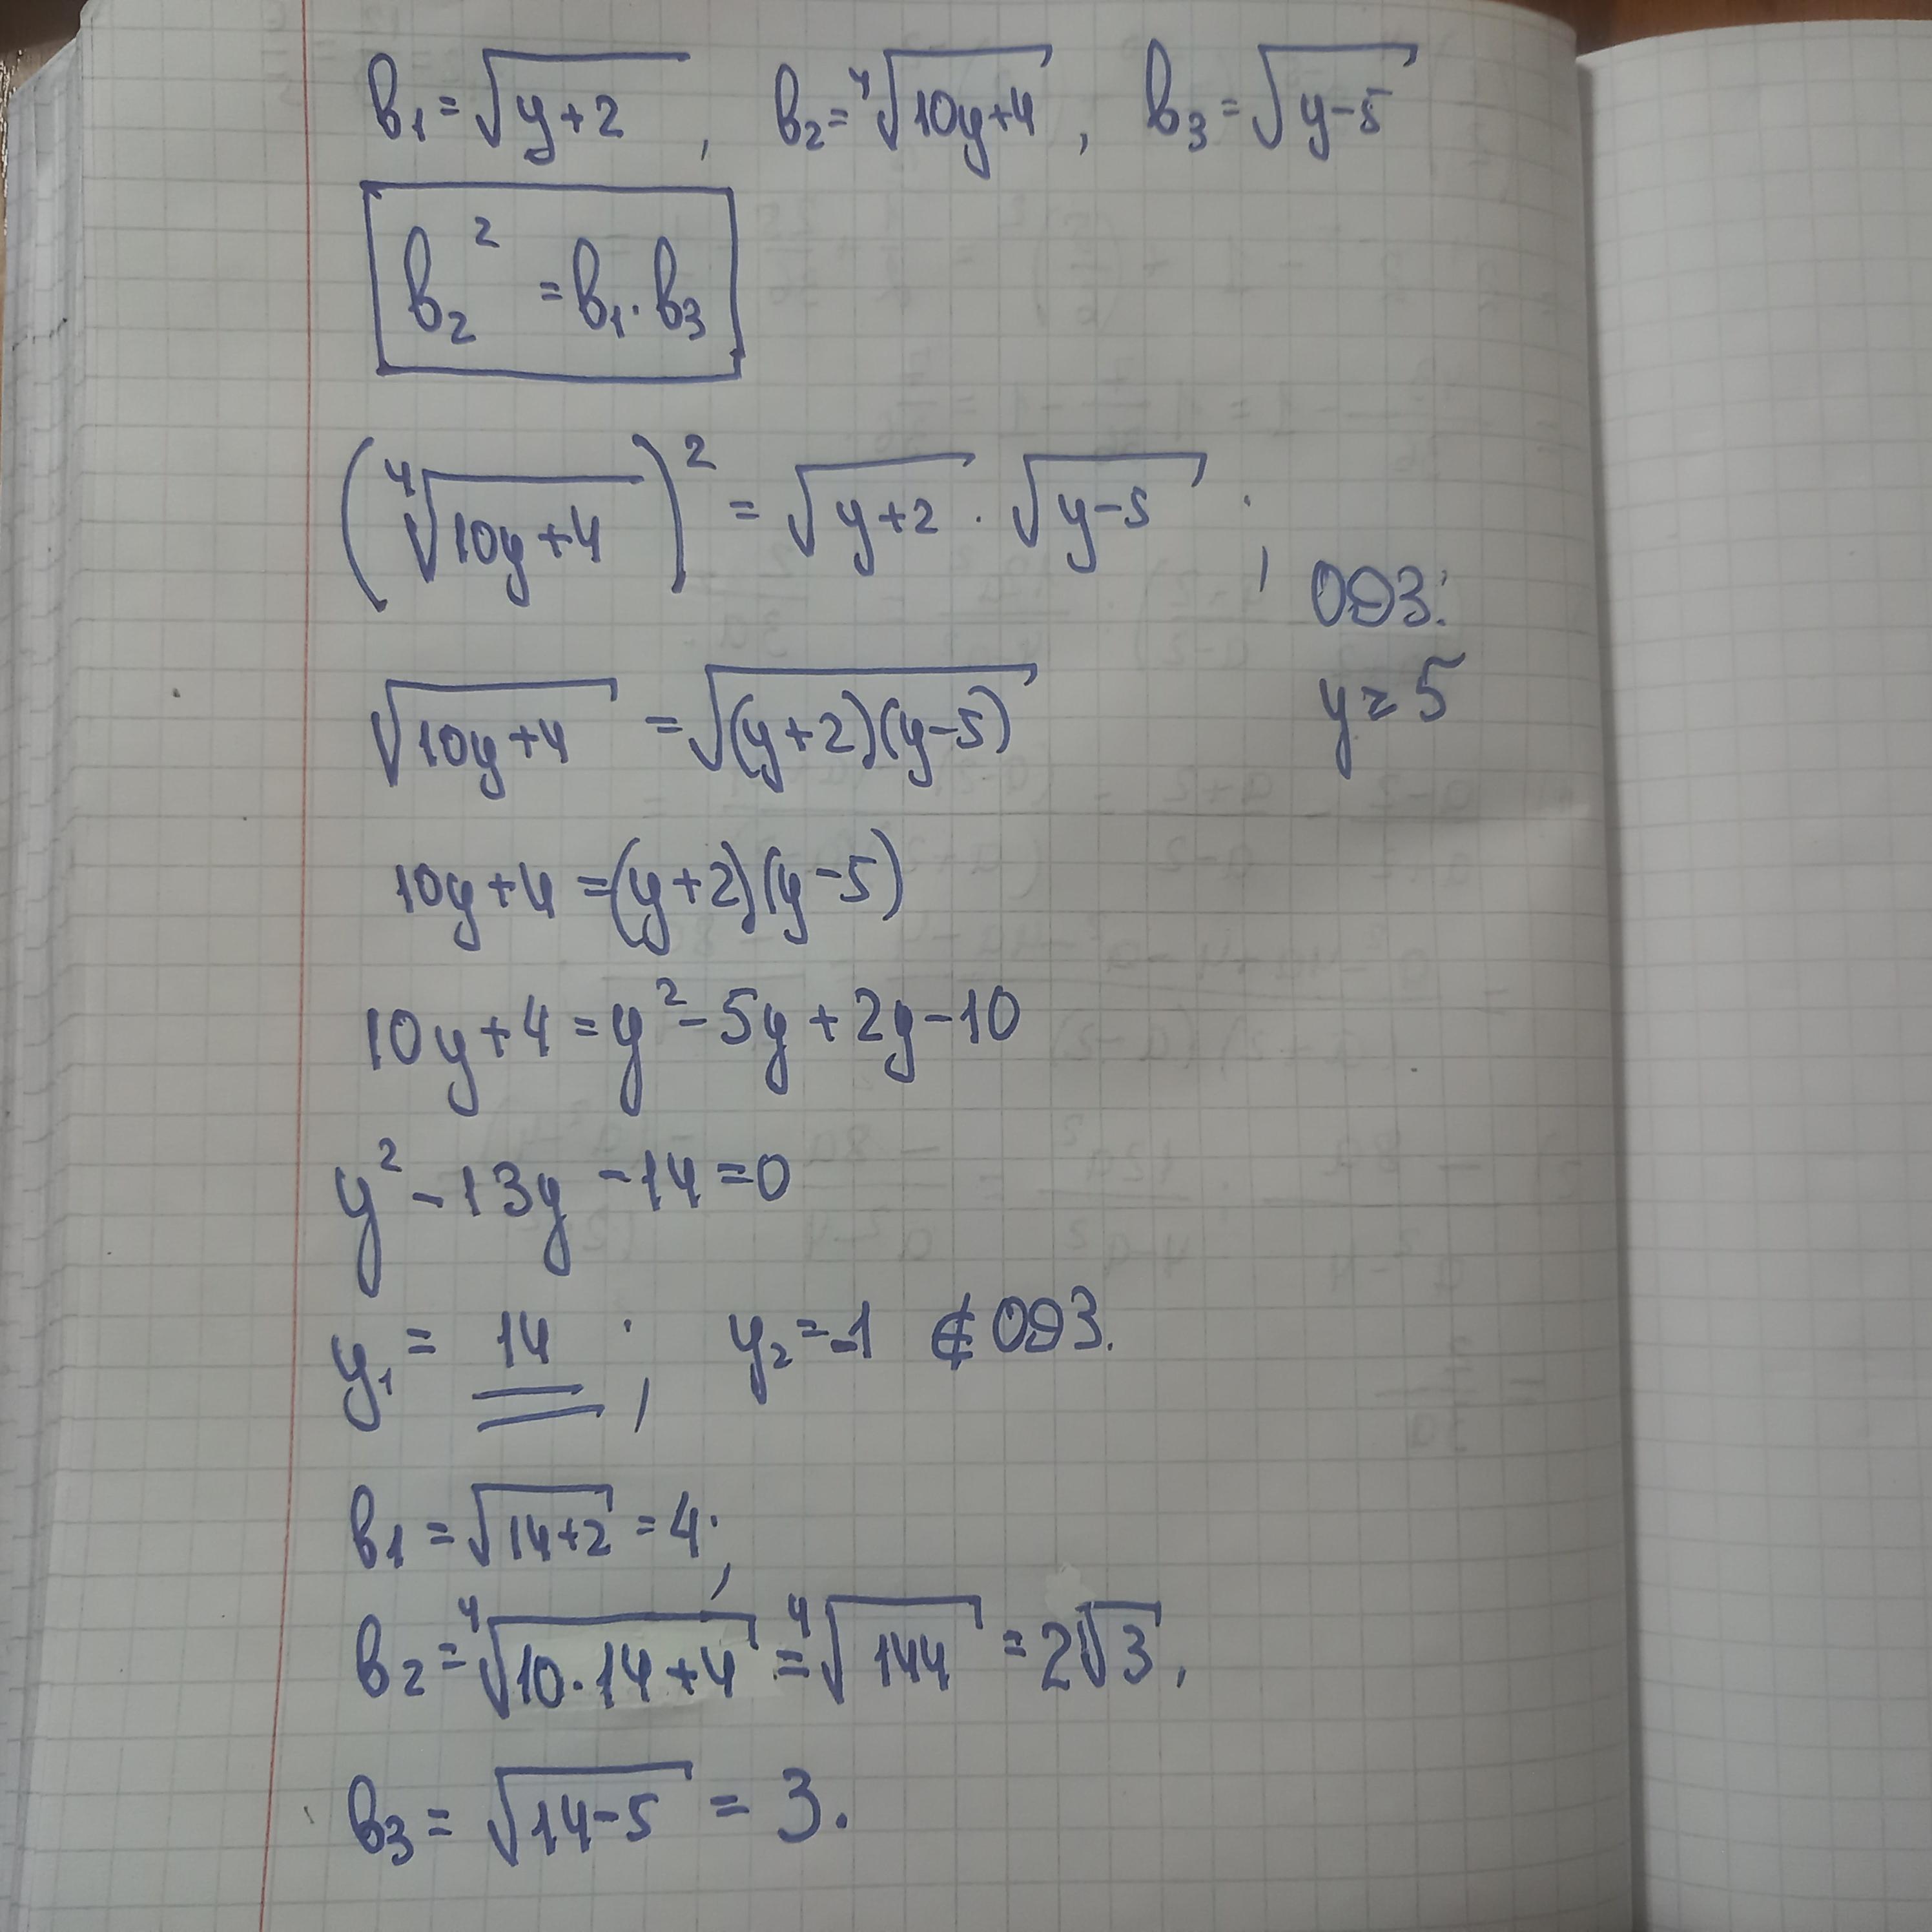 b₁ = √(y+2), b₂ = ⁴√(10y+4), b₃ = √(y-5)
b₂² = b₁ · b₃
(⁴√(10y+4))² = √(y+2) · √(y-5);
ОДЗ:
y ≥ 5
√(10y+4) = √((y+2)(y-5))
10y+4 = (y+2)(y-5)
10y+4 = y² - 5y + 2y - 10
y² - 13y - 14 = 0
y₁ = 14; y₂ = -1 ∉ ОДЗ.
b₁ = √(14+2) = 4;
b₂ = ⁴√(10·14+4) = ⁴√144 = 2√3,
b₃ = √(14-5) = 3.